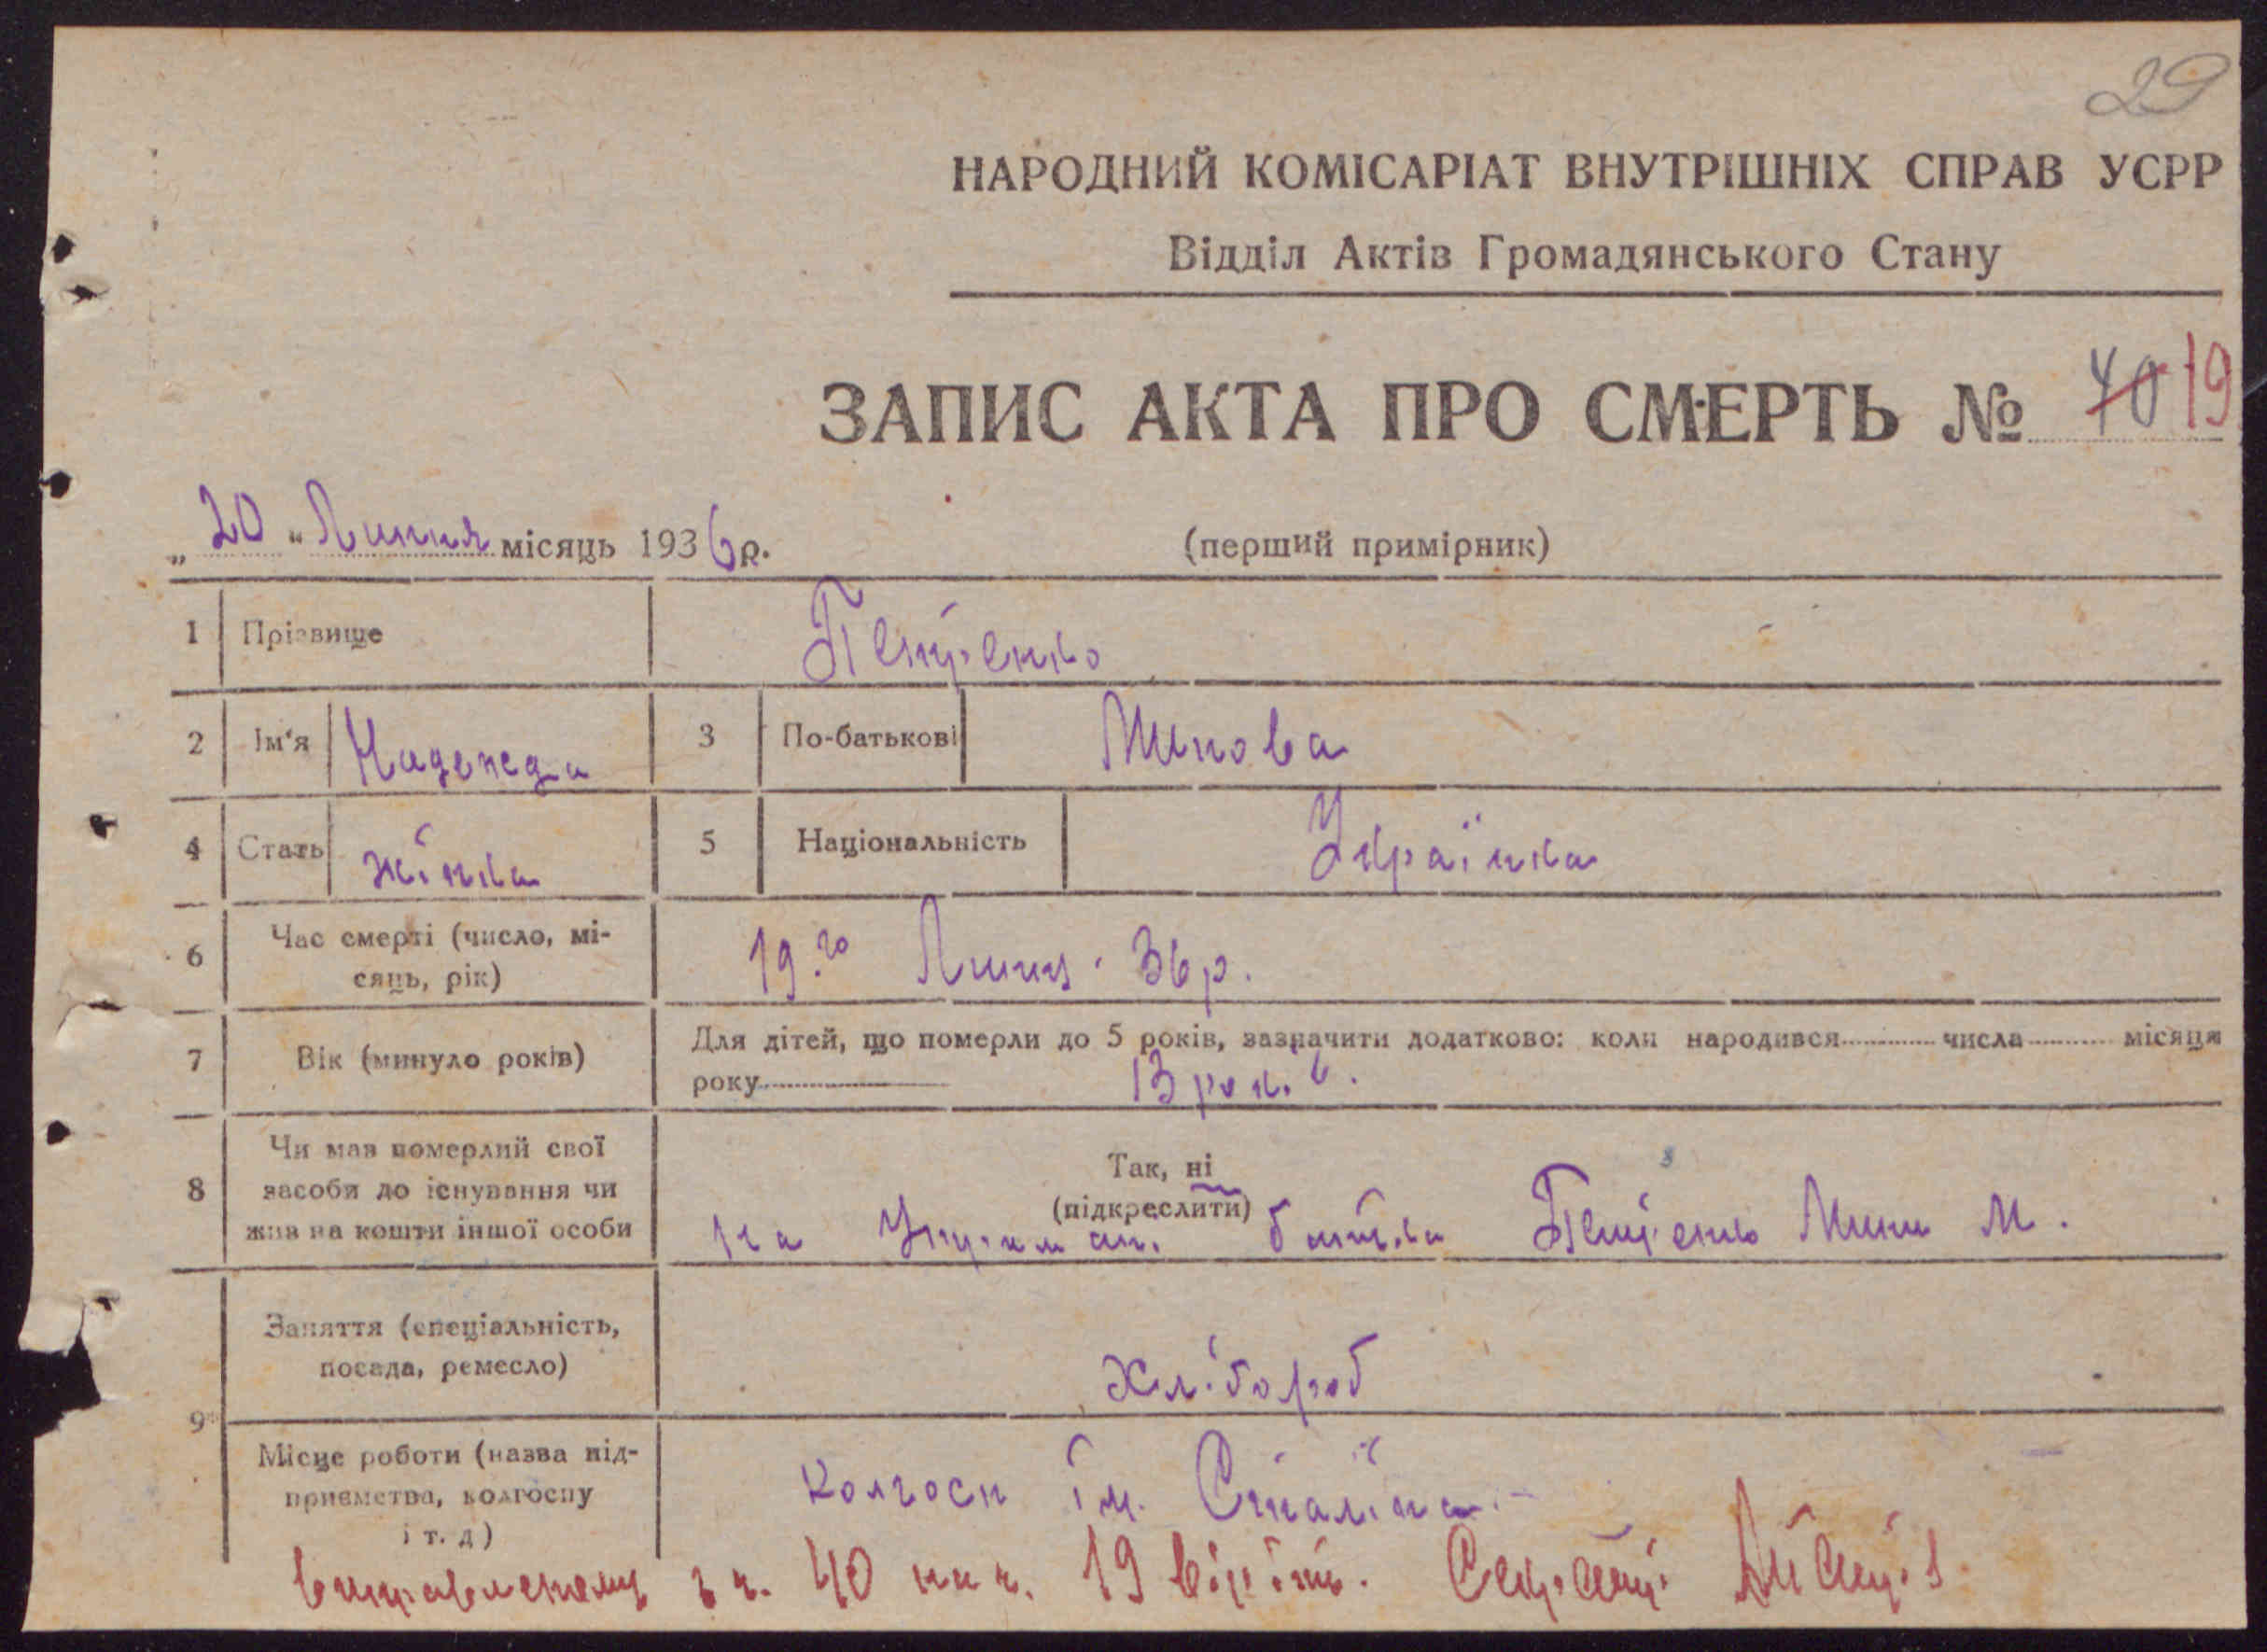 29
НАРОДНИЙ КОМІСАРІАТ ВНУТРІШНІХ СПРАВ УСРР
Відділ Актів Громадянського Стану
ЗАПИС АКТА ПРО СМЕРТЬ № 40 19
„20" Липня місяць 1936 р. (перший примірник)
1 Прізвище Петренко
2 Ім'я Надежда 3 По-батькові Минова
4 Стать жінка 5 Національність Українка
6 Час смерті (число, мі-
сяць, рік) 19го Липня 36 р.
7 Вік (минуло років) Для дітей, що померли до 5 років, зазначити додатково: коли народився числа місяця
року 13 років.
8 Чи мав померлий свої
засоби до існування чи
жив на кошти іншої особи
Так, ні
(підкреслити)
на Утриман. батька Петренко Мини М.
9 Заняття (спеціальність,
посада, ремесло) Хлібороб
Місце роботи (назва під-
приємства, колгоспу
і т. д) Колгосп ім. Сталіна.
виправленому з ч. 40 на ч. 19 вірить. Секретар